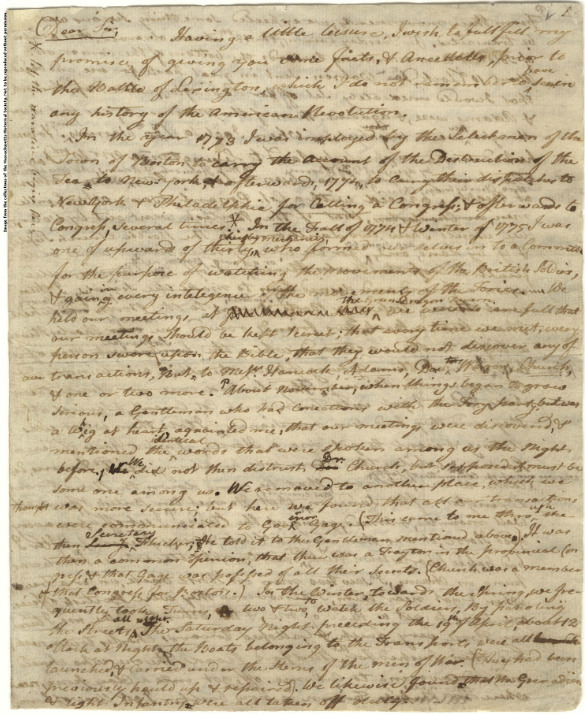 Dear Sir,
Having a little leisure, I wish to fullfill my
promise of giving you some facts, & Anecdotes, prior to
the Battle of Lexington, which I do not remember to have seen in
any history of the American Revolution.
In the year 1773 I was imployed by the Selectmen of the
Town of Boston to carry the Account of the Destruction of the
Tea to New-York, & afterwards, 1774, to carry their dispatches to
New-York & Philadelphia for Calling a Congress; & afterwards to
Congress, several times. In the Fall of 1774 & Winter of 1775 I was
one of upwards of thirty, cheifly mechanics, who formed our selves in to a Committee
for the purpose of watching the Movements of the British Soldiers,
& gaining every intelegence of the movements of the Tories. We
held our meetings at the Green Dragon Tavern. We were so carefull that
our meetings should be kept Secret; that every time we met, every
person swore upon the Bible, that they would not discover any of
our transactions, But to Messrs Hancock, Adams, Doctrs Warren, Church,
& one or two more. About November, when things began to grow
Serious, a Gentleman who had Conections with the Tory party, but was
a Whig at heart, acquainted me, that our meetings were discovered, &
mentioned the identical words that were spoken among us the Night
before. We did not then distrust Dr. Church, but supposed it must be
some one among us. We removed to another place, which we
thought was more secure; but here we found that all our transactions
were communicated to Govr Gage. (This came to me through the
then Secretary Flucker; He told it to the Gentleman mentioned above). It was
then a common opinion, that there was a Traytor in the provincial Con-
gress, & that Gage was possessed of all their Secrets. (Church was a member
of that Congress for Boston.) In the Winter, towards the Spring, we fre-
quently took Turns, two & two, to Watch the Soldiers, By patroling
the Streets all night. The Saturday Night preceding the 19th of April, about 12
oClock at Night, the Boats belonging to the Transports were all
launched, & carried under the Sterns of the Men of War. (They had been
previously hauld up & repaired). We likewise found that the Grenadiers
& light Infantry were all taken off duty.
Image from the collections of the Massachusetts Historical Society, not to be reproduced without permission.